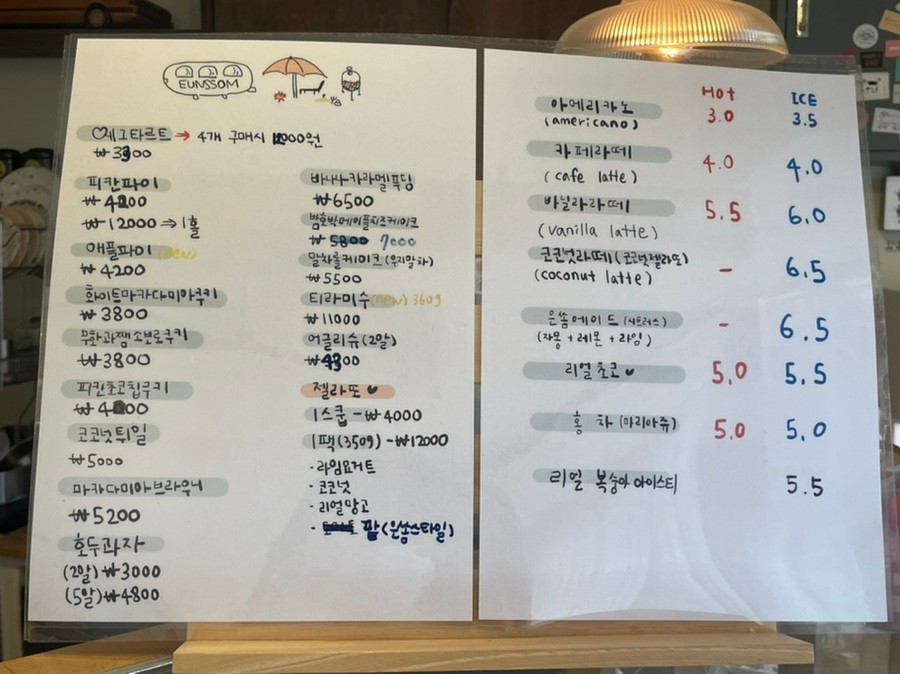 EUNSSOM
♡에그타르트 → 4개 구매시 000원
₩3300
피칸파이
₩4200
₩12000 ⇒ 1홀
애플파이 (new)
₩4200
화이트마카다미아쿠키
₩3800
무화과잼소보로쿠키
₩3800
피칸초코칩쿠키
₩4 00
코코넛튀일
₩5000
마카다미아브라우니
₩5200
호두과자
(2알) ₩3000
(5알) ₩4800
바나나카라멜푸딩
₩6500
밤호박메이플치즈케이크
₩ 5800 7000
말차롤케이크 (우지말차)
₩5500
티라미수 (new) 360g
₩11000
어글리슈 (2알)
₩4300
젤라또 ♥
1스쿱 - ₩4000
1팩(350g) - ₩12000
· 라임요거트
· 코코넛
· 리얼망고
· 팥 (은쏨스타일)
Hot ICE
아메리카노 3.0 3.5
(americano)
카페라떼 4.0 4.0
(cafe latte)
바닐라라떼 5.5 6.0
(vanilla latte)
코코넛라떼 (코코넛젤라또) - 6.5
(coconut latte)
은쏨에이드 (시트러스) - 6.5
(자몽 + 레몬 + 라임)
리얼초코 ♥ 5.0 5.5
홍 차 (마리아쥬) 5.0 5.0
리얼 복숭아 아이스티 5.5